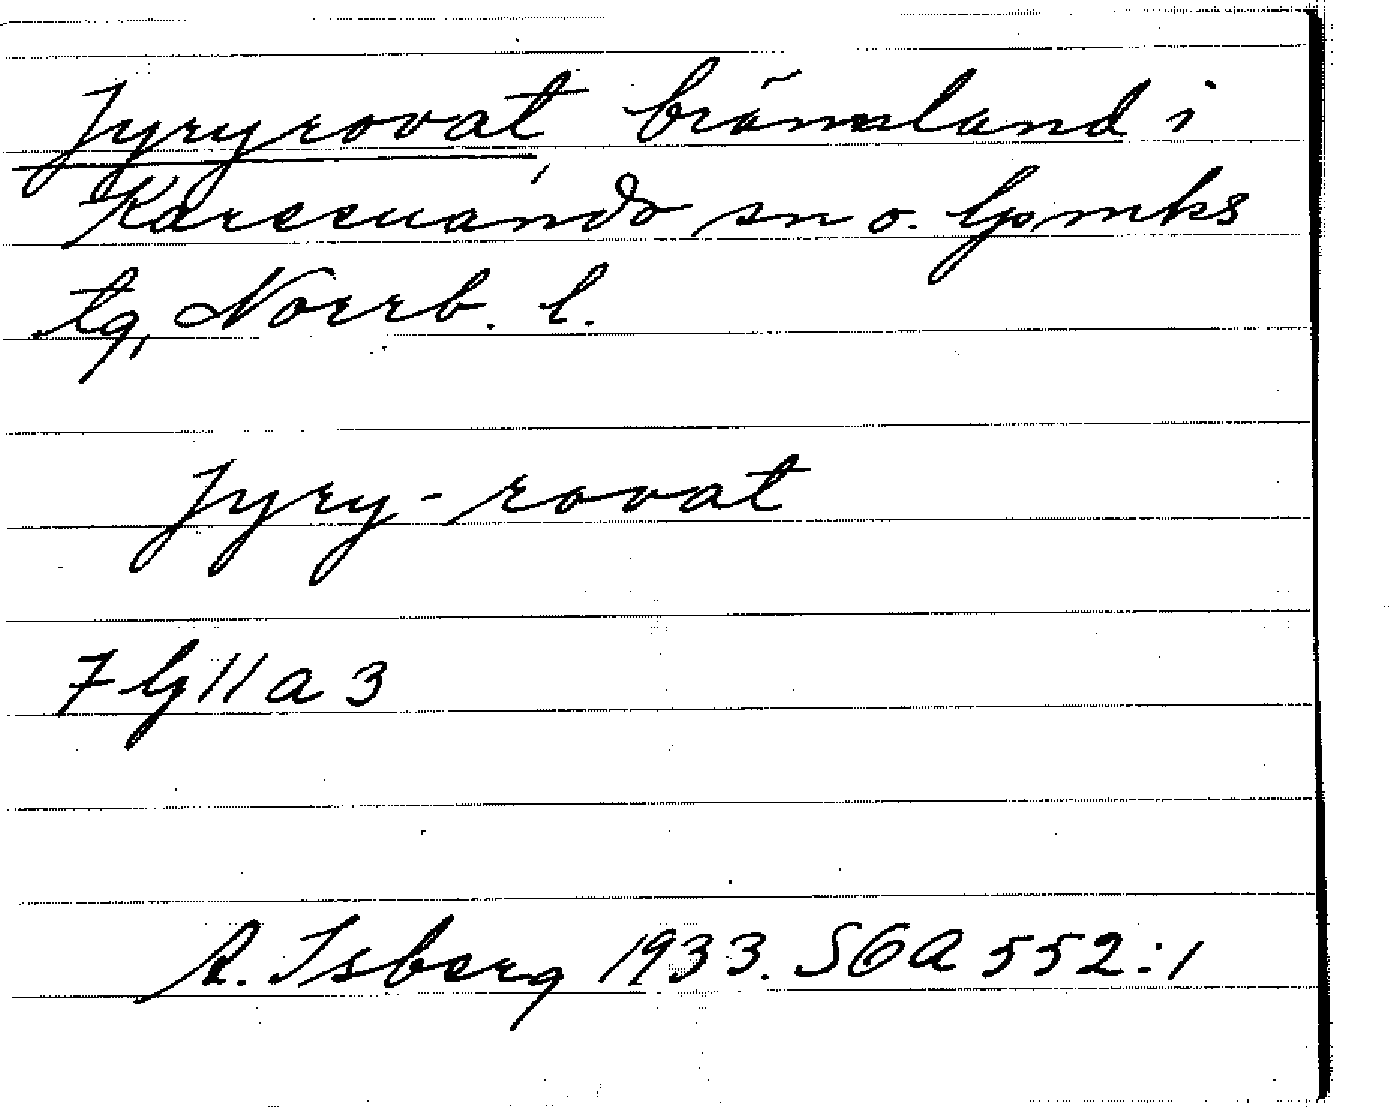 Jyryrovat, brännland i
Karesuando sn o. lpmks
tg, Norrb. l.
Jyry-rovat
7 lg 11 a 3
A. Isberg 1933. SOA 552:1